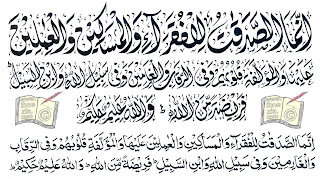 اِنَّمَا الصَّدَقٰتُ لِلْفُقَرَآءِ وَالْمَسٰكِيْنِ وَالْعٰمِلِيْنَ
عَلَيْهَا وَالْمُؤَلَّفَةِ قُلُوْبُهُمْ وَفِي الرِّقَابِ وَالْغٰرِمِيْنَ وَفِيْ سَبِيْلِ اللّٰهِ وَابْنِ السَّبِيْلِ
فَرِيْضَةً مِّنَ اللّٰهِ ؕ وَاللّٰهُ عَلِيْمٌ حَكِيْمٌ
اِنَّمَا الصَّدَقٰتُ لِلْفُقَرَآءِ وَالْمَسَاكِيْنِ وَالْعَامِلِيْنَ عَلَيْهَا وَالْمُؤَلَّفَةِ قُلُوْبُهُمْ وَفِي الرِّقَابِ
وَالْغَارِمِيْنَ وَفِيْ سَبِيْلِ اللّٰهِ وَابْنِ السَّبِيْلِ ؕ فَرِيْضَةً مِّنَ اللّٰهِ ؕ وَاللّٰهُ عَلِيْمٌ حَكِيْمٌ